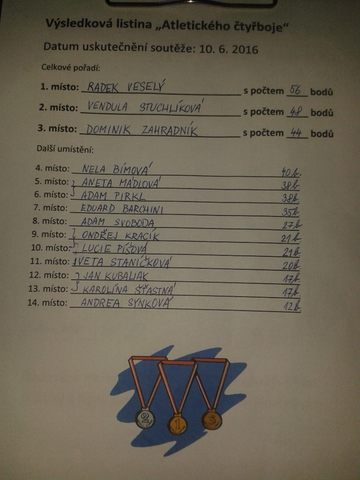 Výsledková listina „Atletického čtyřboje“
Datum uskutečnění soutěže: 10. 6. 2016
Celkové pořadí:
1. místo: RADEK VESELÝ s počtem 56 bodů
2. místo: VENDULA STUCHLÍKOVÁ s počtem 48 bodů
3. místo: DOMINIK ZAHRADNÍK s počtem 44 bodů
Další umístění:
4. místo: NELA BÍMOVÁ 40 b.
5. místo: ANETA MÁDLOVÁ 38 b.
6. místo: ADAM PIRKL 38 b.
7. místo: EDUARD BARCHINI 35 b.
8. místo: ADAM SVOBODA 27 b.
9. místo: ONDŘEJ KRACÍK 21 b.
10. místo: LUCIE PÍŠOVÁ 21 b.
11. místo: IVETA STANÍČKOVÁ 20 b.
12. místo: JAN KUBALIAK 17 b.
13. místo: KAROLÍNA ŠŤASTNÁ 17 b.
14. místo: ANDREA SYNKOVÁ 12 b.
2 1 3